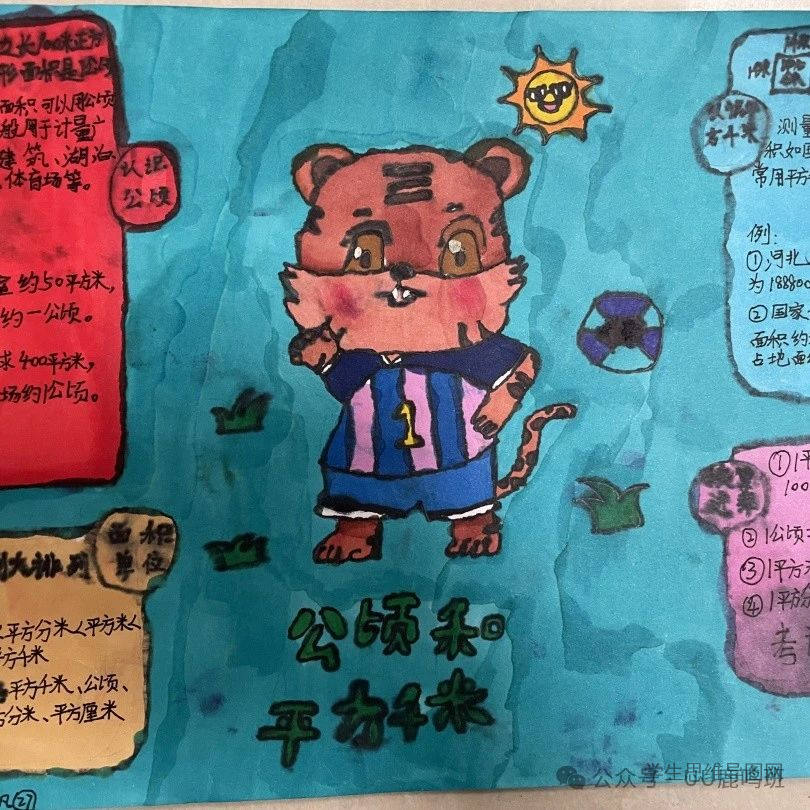 边长100米正方
形面积是1公顷
面积可以用公顷
般用于计量广
建筑、湖泊
体育场等。
认识
公顷
室约50平方米,
约一公顷。
球400平方米,
场约1公顷。
面积
单位
到大排列
平方分米<平方米<
平方千米
平方千米、公顷、
方分米、平方厘米
1
公顷和
平方千米
方千米
测量
积如国
常用平方
例:
①河北
为18880
②国家
面积约
占地面
①1平
100
②1公顷
③1平方
④1平方
考
公众号·UU鹿鸣班
学生思维导图网